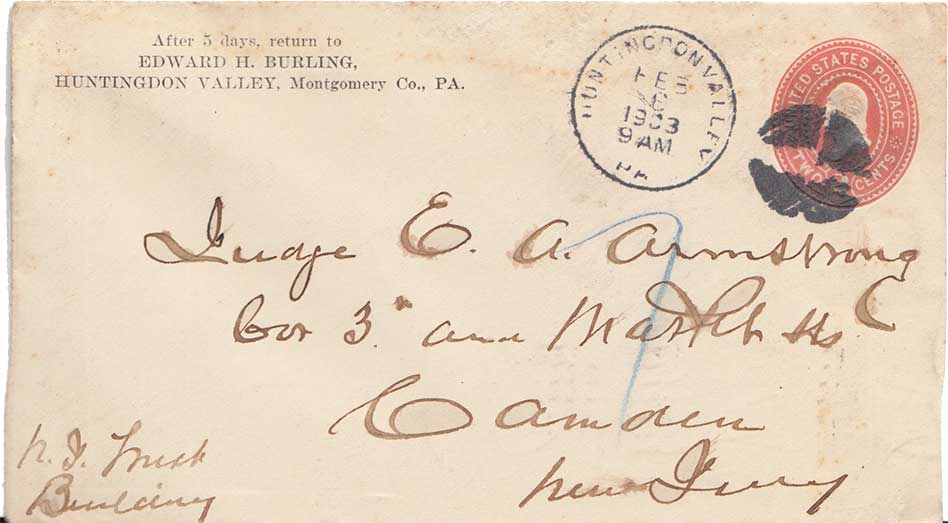 After 5 days, return to
EDWARD H. BURLING,
HUNTINGDON VALLEY, Montgomery Co., PA.
HUNTINGDON VALLEY
FEB
6
1903
9 AM
PA
UNITED STATES POSTAGE
TWO CENTS
Judge E. A. Armstrong
Cor 3" and Market Sts
Camden
New Jersey
N. J. Trust
Building
7